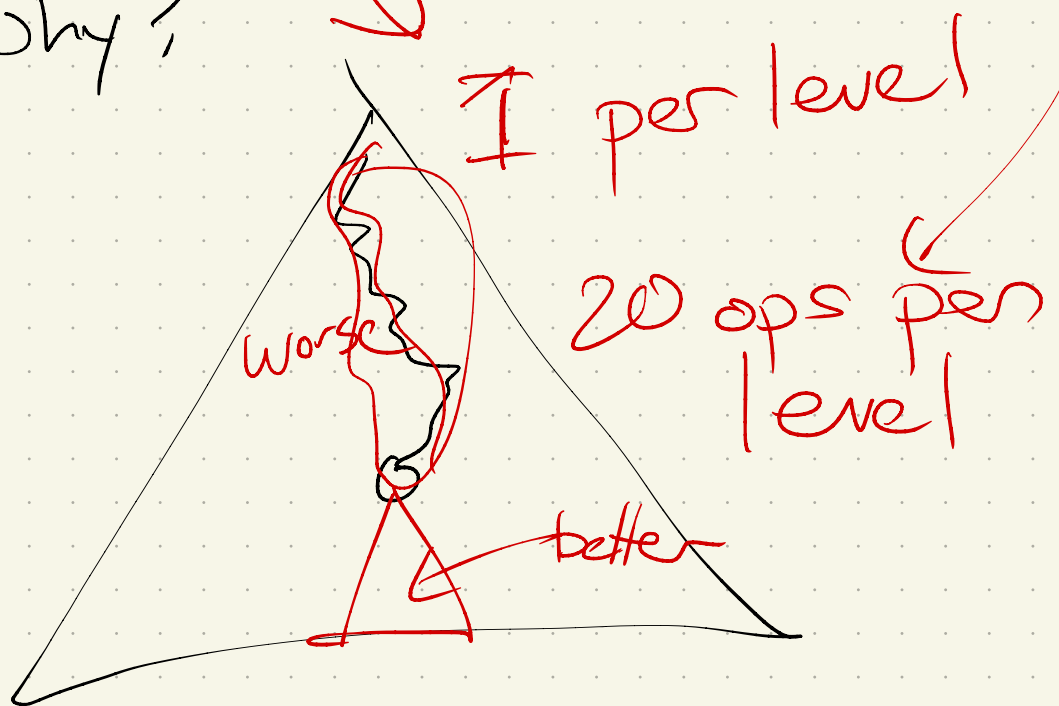 why?
1 per level
20 ops per
level
worse
better